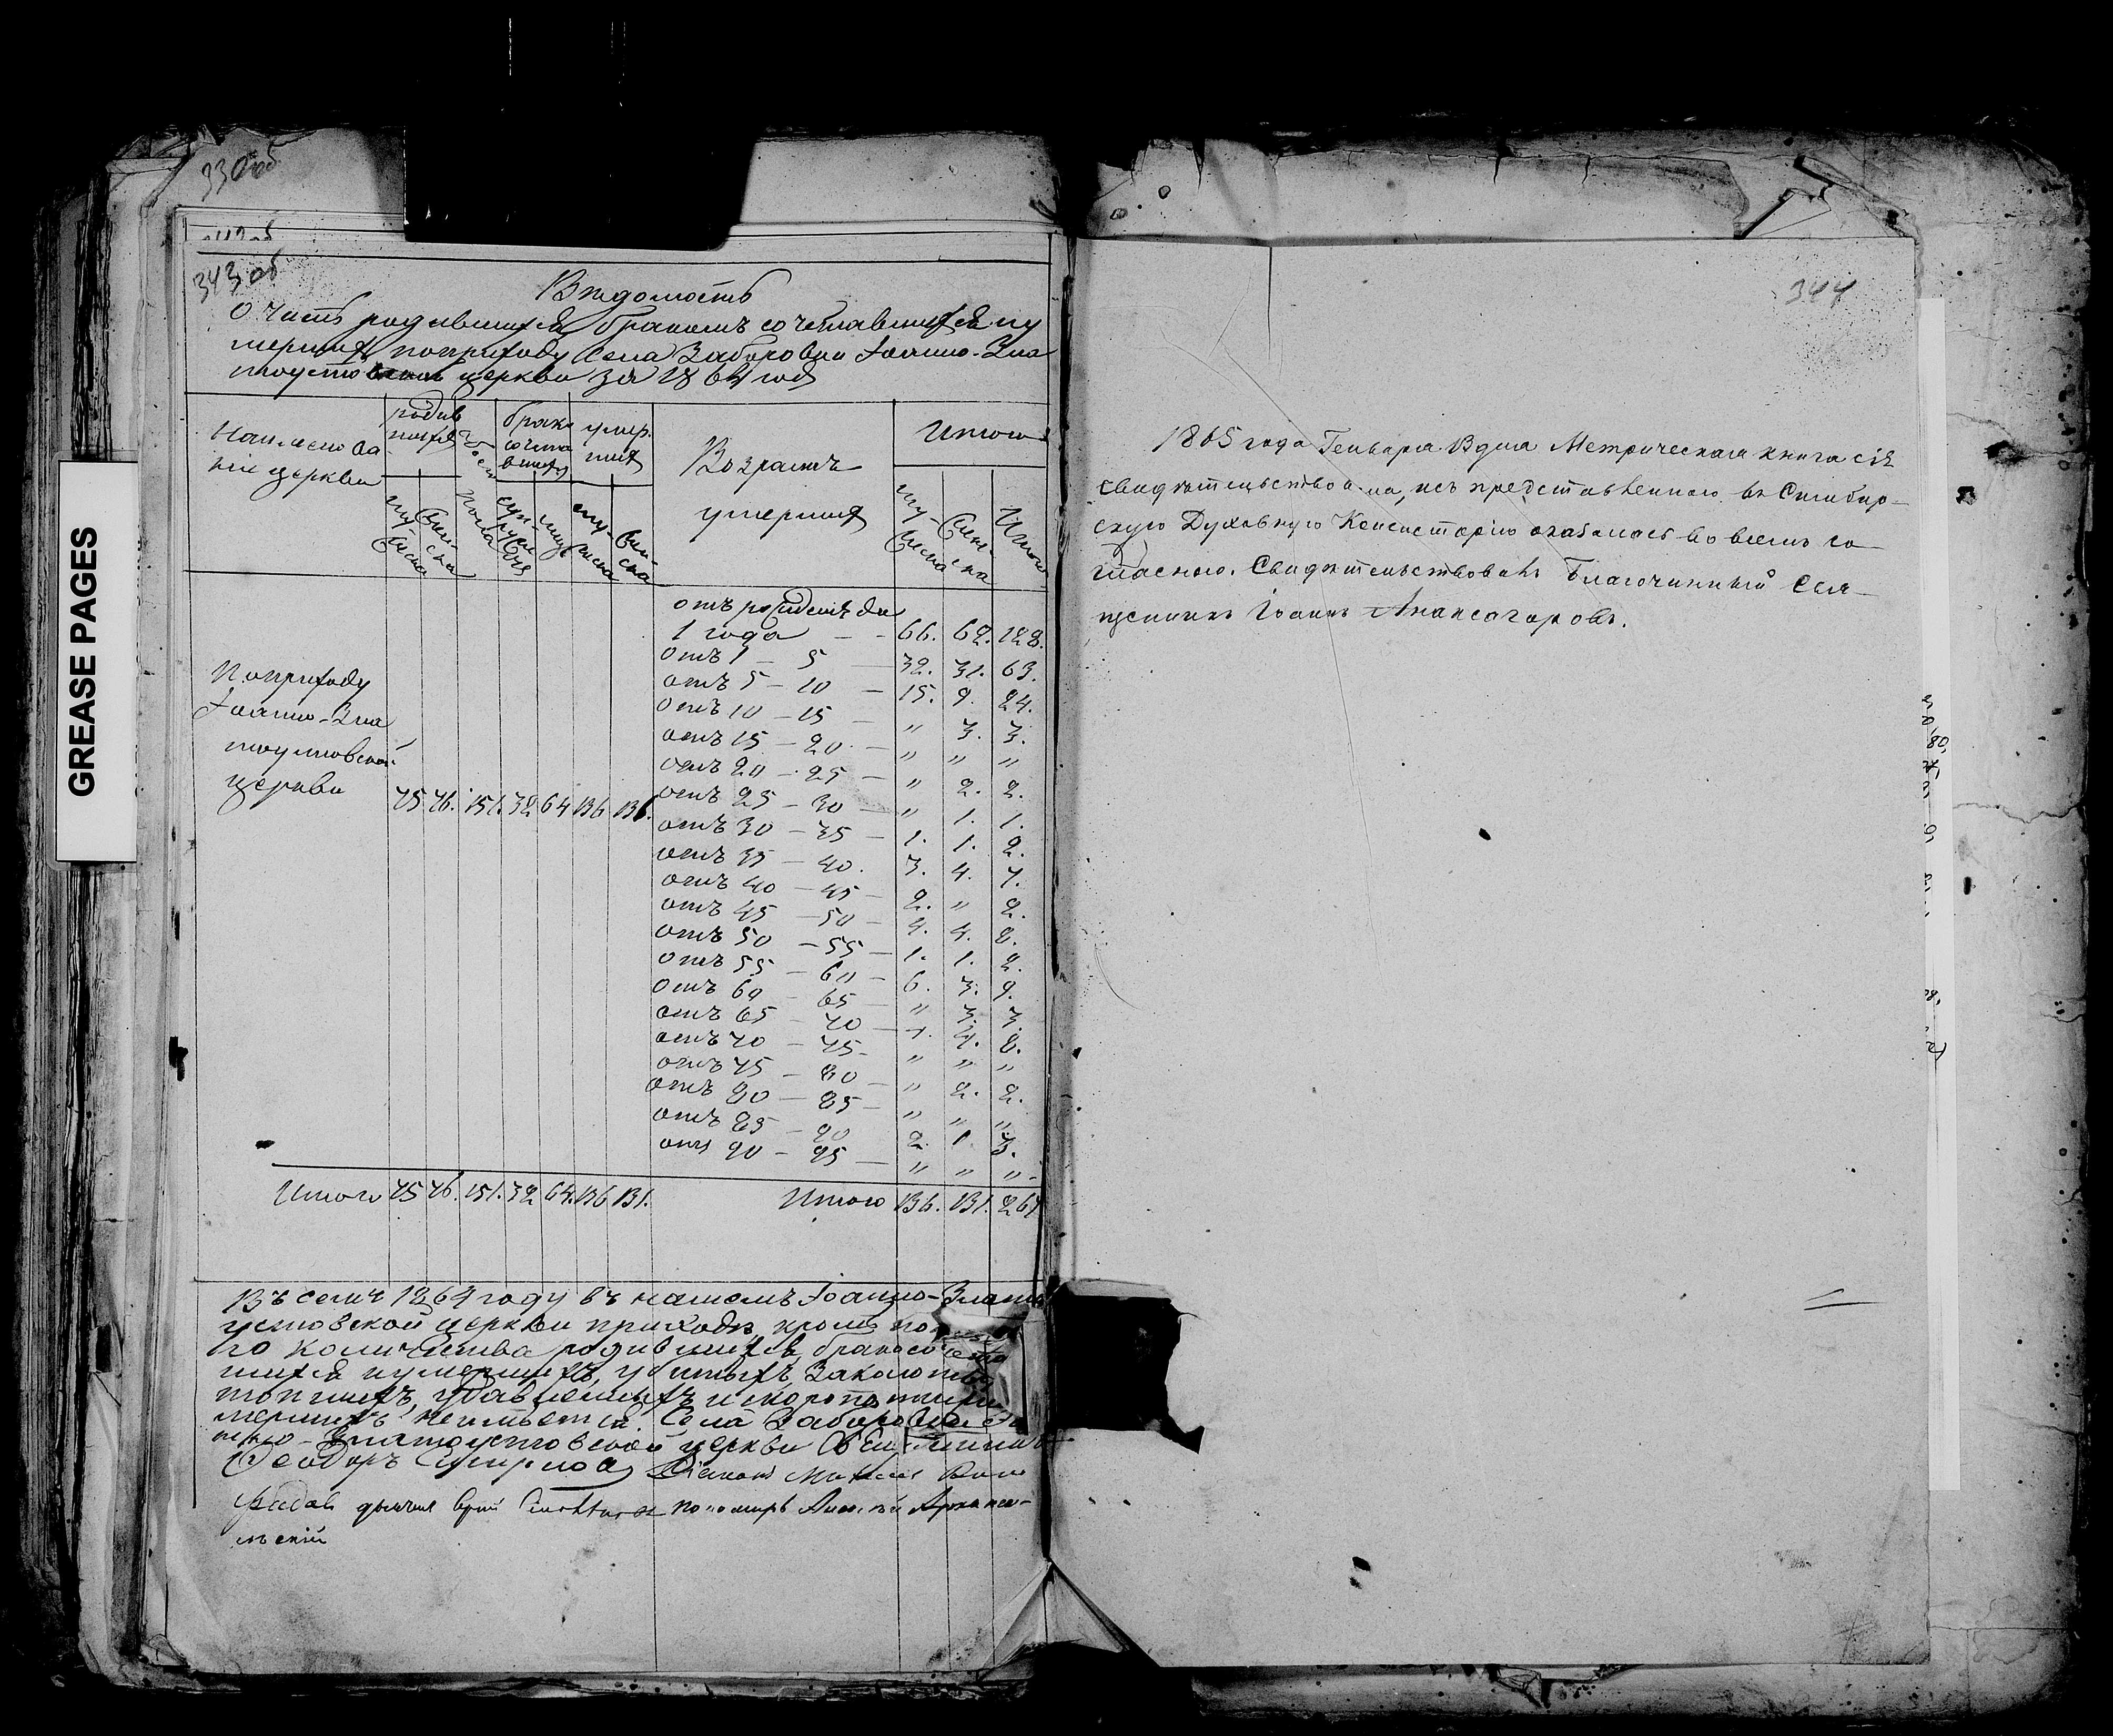 330об
343 об
Вѣдомость
О числѣ родившихся бракомъ сочетавшихся и у
мершихъ по приходу села Заборовки Іоанно-Зла
тоустовской церкви за 1864 годъ
Наименова
ніе церкви
родив
шихся
брако
сочета
вшихся
умер.
шихъ
Возрастъ
умершихъ
Итого
Му-
жеска
Жен-
ска
Пола
суп-
руже
ствъ
лицъ
му-
жеска
Жен-
ска
Му-
жеска
Жен-
ска
Итого
По приходу
Іоанно-Зла
тоустовской
церкви
75. 76. 151. 32 64 136 136.
отъ рожденія до
1 года — - 66. 62. 128.
отъ 1 — 5 — 32. 31. 63.
отъ 5 — 10 — 15. 9. 24.
отъ 10 — 15 — " 3. 3.
отъ 15 — 20 — " " "
отъ 20 — 25 — " 2. 2.
отъ 25 — 30 — " 1. 1.
отъ 30 — 35 — 1. 1. 2.
отъ 35 — 40. 3. 4. 7.
отъ 40 — 45 — 2. " 2.
отъ 45 — 50 — 4. 4. 8.
отъ 50 — 55 — 1. 1. 2.
отъ 55 — 60 — 6. 3. 9.
отъ 60 — 65 — " 3. 3.
отъ 65 — 70 — 4. 4. 8.
отъ 70 — 75 - " " "
отъ 75 — 80 — " 2. 2.
отъ 80 — 85 — " " "
отъ 85 — 90 2. 1. 3.
отъ 90 — 95 — " " "
Итого 75 76. 151. 32 64. 136 131.
Итого 136. 131. 267
Въ семъ 1864 году въ нашемъ Іоанно-Злато
устовской церкви приходѣ, кромѣ
го количества родившихся, бракосочета
шихся и умершихъ, убитыхъ,
удавленныхъ и скоропостижно
мершихъ неимѣется. Села Заборовки Іо
нно-Златоустовской церкви Священникъ
Ѳеодоръ Діаконъ
дьячекъ пономарь Алексѣй Арханге-
льскій
GREASE PAGES
344
1865 года Генваря 13 дня Метрическая книга сія
свидѣтельствована, и съ представленною въ Симбир-
скую Духовную Консисторію оказалась во всемъ со-
гласною. Свидѣтельствовалъ Благочинный Свя-
щенникъ Іоаннъ Анаксагоровъ.